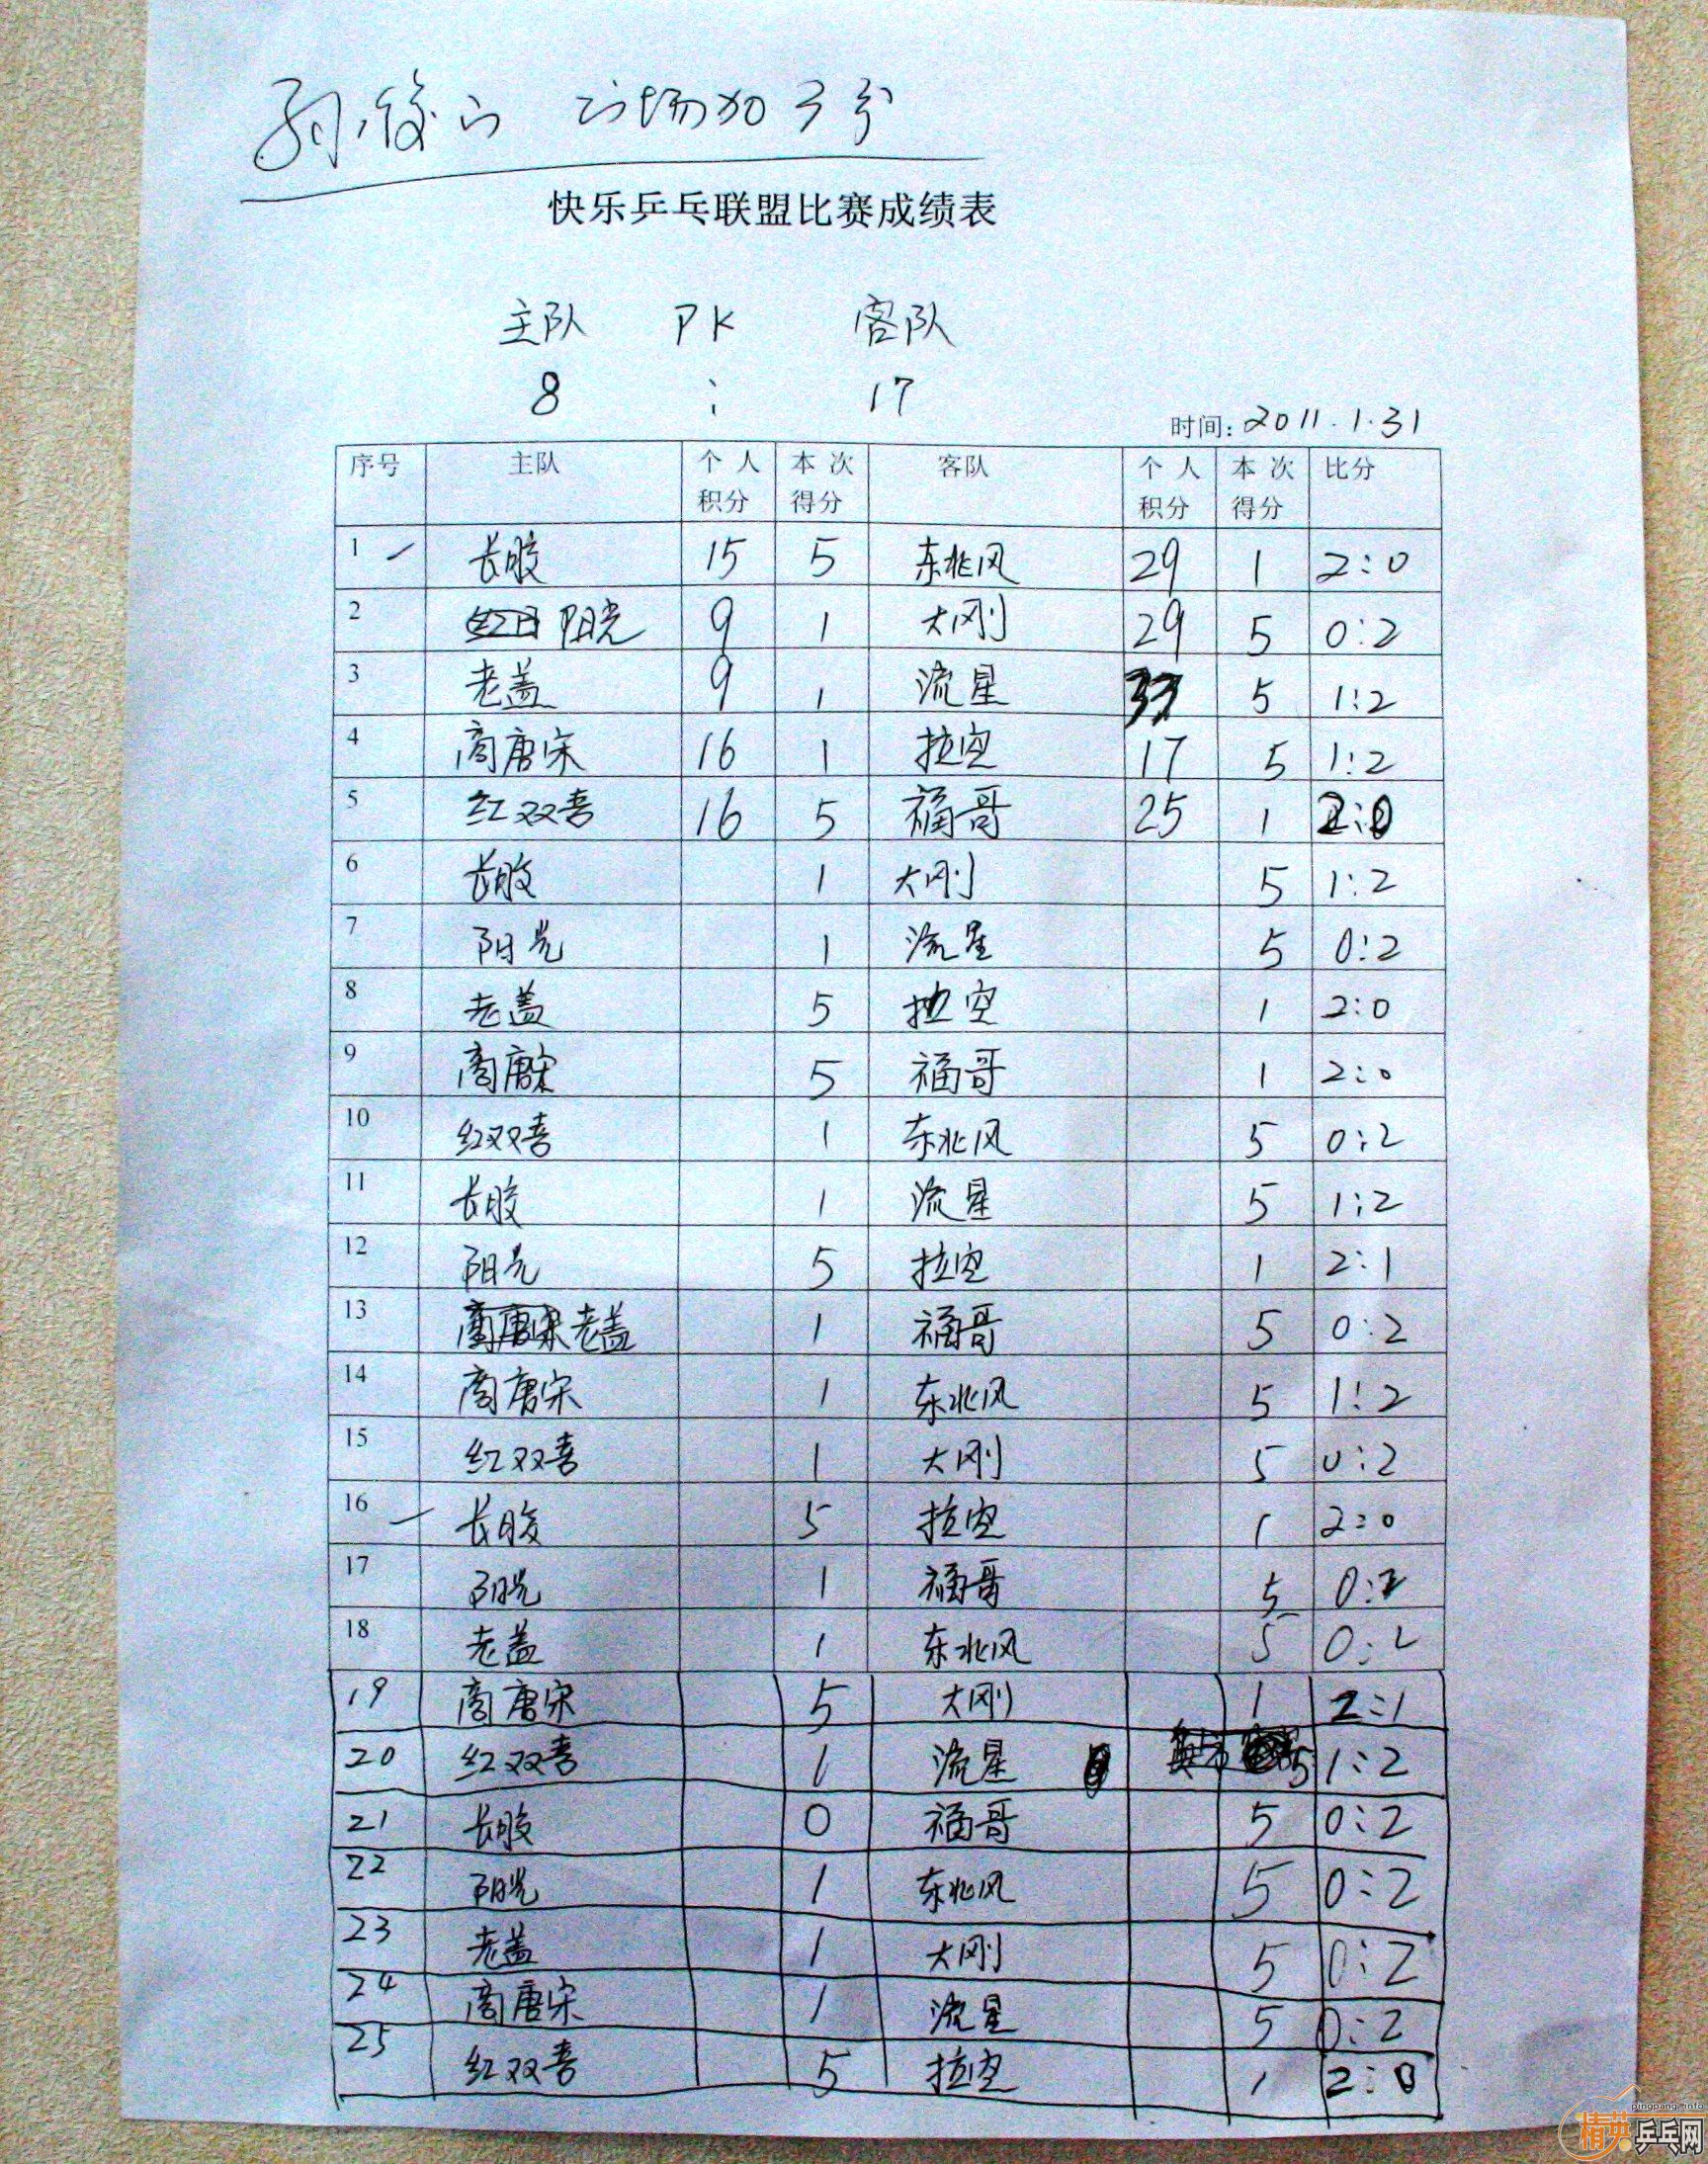 加3分
快乐乒乓联盟比赛成绩表
主队 PK 客队
8 : 17
时间: 2011.1.31
序号 主队 个人积分 本次得分 客队 个人积分 本次得分 比分
1 长胶 15 5 东北风 29 1 2:0
2 阳光 9 1 大刚 29 5 0:2
3 老盖 9 1 流星 33 5 1:2
4 商唐宋 16 1 拉空 17 5 1:2
5 红双喜 16 5 福哥 25 1 2:0
6 长胶 1 大刚 5 1:2
7 阳光 1 流星 5 0:2
8 老盖 5 拉空 1 2:0
9 商唐宋 5 福哥 1 2:0
10 红双喜 1 东北风 5 0:2
11 长胶 1 流星 5 1:2
12 阳光 5 拉空 1 2:1
13 老盖 1 福哥 5 0:2
14 商唐宋 1 东北风 5 1:2
15 红双喜 1 大刚 5 0:2
16 长胶 5 拉空 1 2:0
17 阳光 1 福哥 5 0:2
18 老盖 1 东北风 5 0:2
19 商唐宋 5 大刚 1 2:1
20 红双喜 1 流星 5 1:2
21 长胶 0 福哥 5 0:2
22 阳光 1 东北风 5 0:2
23 老盖 1 大刚 5 0:2
24 商唐宋 1 流星 5 0:2
25 红双喜 5 拉空 1 2:0
pingpang.info
精英乒乓网